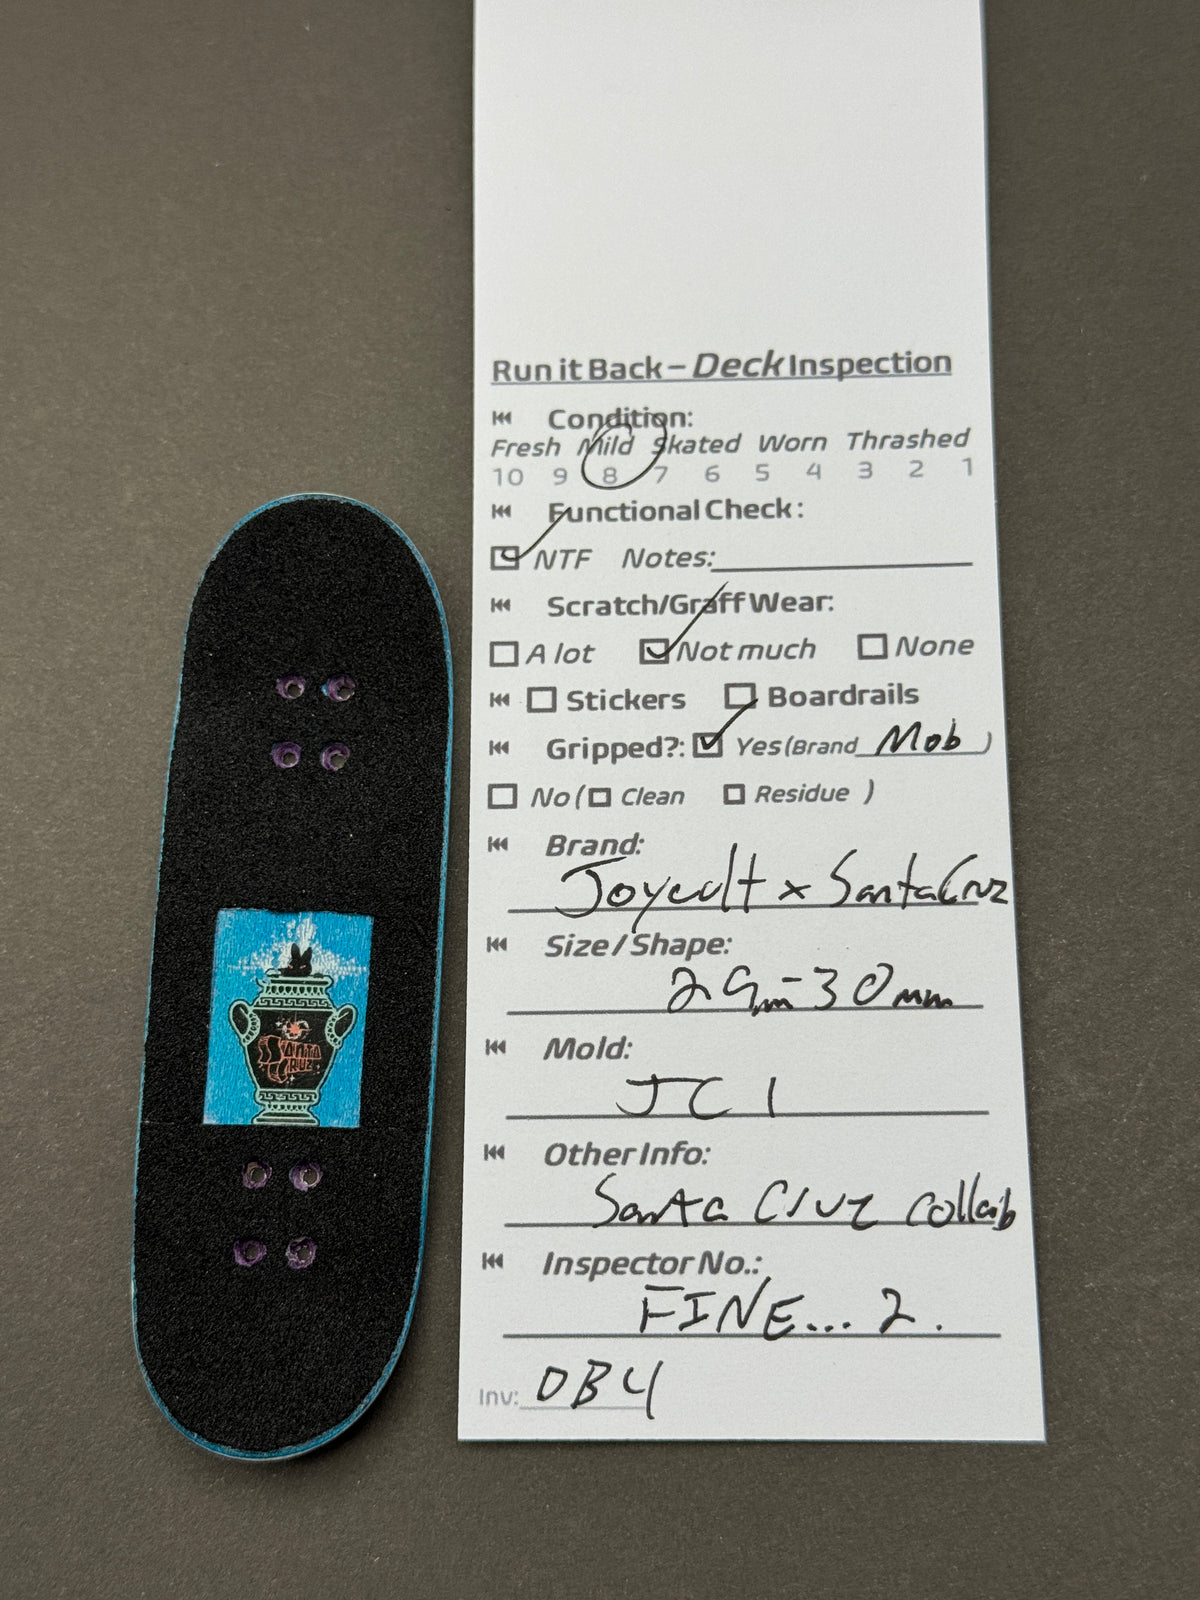 Run it Back – Deck Inspection
Condition:
Fresh Mild Skated Worn Thrashed
10 9 8 7 6 5 4 3 2 1
Functional Check:
NTF Notes:
Scratch/Graff Wear:
A lot Not much None
Stickers Boardrails
Gripped?: Yes (Brand Mob )
No ( Clean Residue )
Brand:
Joycult x SantaCruz
Size / Shape:
29mm-30mm
Mold:
JC1
Other Info:
Santa Cruz collab
Inspector No.:
FINE... 2.
Inv: DB4
SANTA
CRUZ